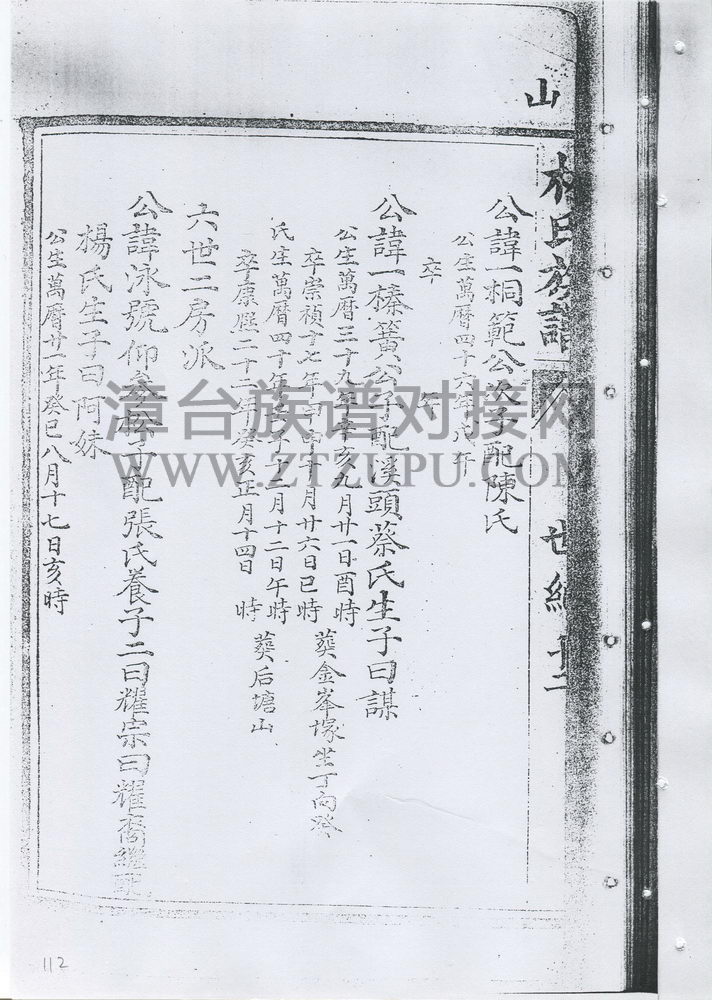 山
林氏族譜
世紀十二
公諱一桐範公次子配陳氏
公生萬曆四十六年戊午
卒
公諱一榛簧公子配溪頭蔡氏生子曰謀
公生萬曆三十九年辛亥九月廿一日酉時
卒崇禎十七年甲申十月廿六日巳時
葬金峯塚坐丁向癸
氏生萬曆四十年壬子十二月十二日午時
卒康熙二十二年癸亥正月十四日 時
葬后塘山
六世二房派
公諱泳號仰 子配張氏養子二曰耀宗曰耀裔繼配
楊氏生子曰阿妹
公生萬曆廿一年癸巳八月十七日亥時
漳台族谱对接网
WWW.ZTZUPU.COM
112